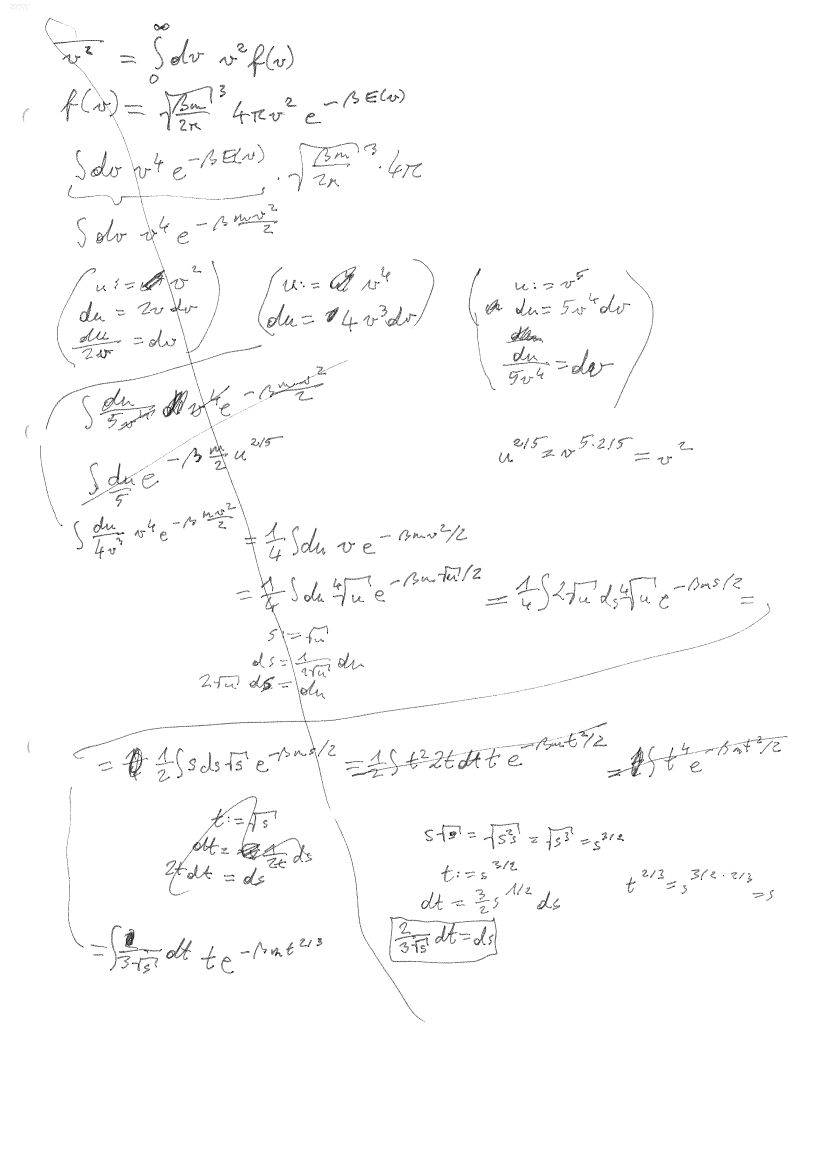 v̅² = ∫₀^∞ dv v² f(v)
f(v) = √(βm/2π)³ 4πv² e^{-βE(v)}
∫dv v⁴ e^{-βE(v)} · √(βm/2π)³ · 4π
∫dv v⁴ e^{-β mv²/2}
(u := v²
du = 2v dv
du/2v = dv)
(u := v⁴
du = 4v³dv)
(u := v⁵
du = 5v⁴dv
du/5v⁴ = dv)
∫ du/5v⁴ v⁴ e^{-β mv²/2}
∫ du/5 e^{-β m/2 u^{2/5}}
u^{2/5} = v^{5·2/5} = v²
∫ du/4v³ v⁴ e^{-β mv²/2} = 1/4 ∫du v e^{-βmv²/2}
= 1/4 ∫du ⁴√u e^{-βm√u/2} = 1/4 ∫2√u ds ⁴√u e^{-βms/2} =
s := √u
ds = 1/(2√u) du
2√u ds = du
= 1/2 ∫s ds √s e^{-βms/2} = 1/2 ∫t² 2t dt t e^{-βmt²/2} = ∫t⁴ e^{-βmt²/2}
t := √s
dt = 1/2t ds
2t dt = ds
s√s = √(s²s) = √s³ = s^{3/2}
t := s^{3/2}
t^{2/3} = s^{3/2·2/3} = s
dt = 3/2 s^{1/2} ds
2/(3√s) dt = ds
= ∫ 1/(3√s) dt t e^{-βmt^{2/3}}